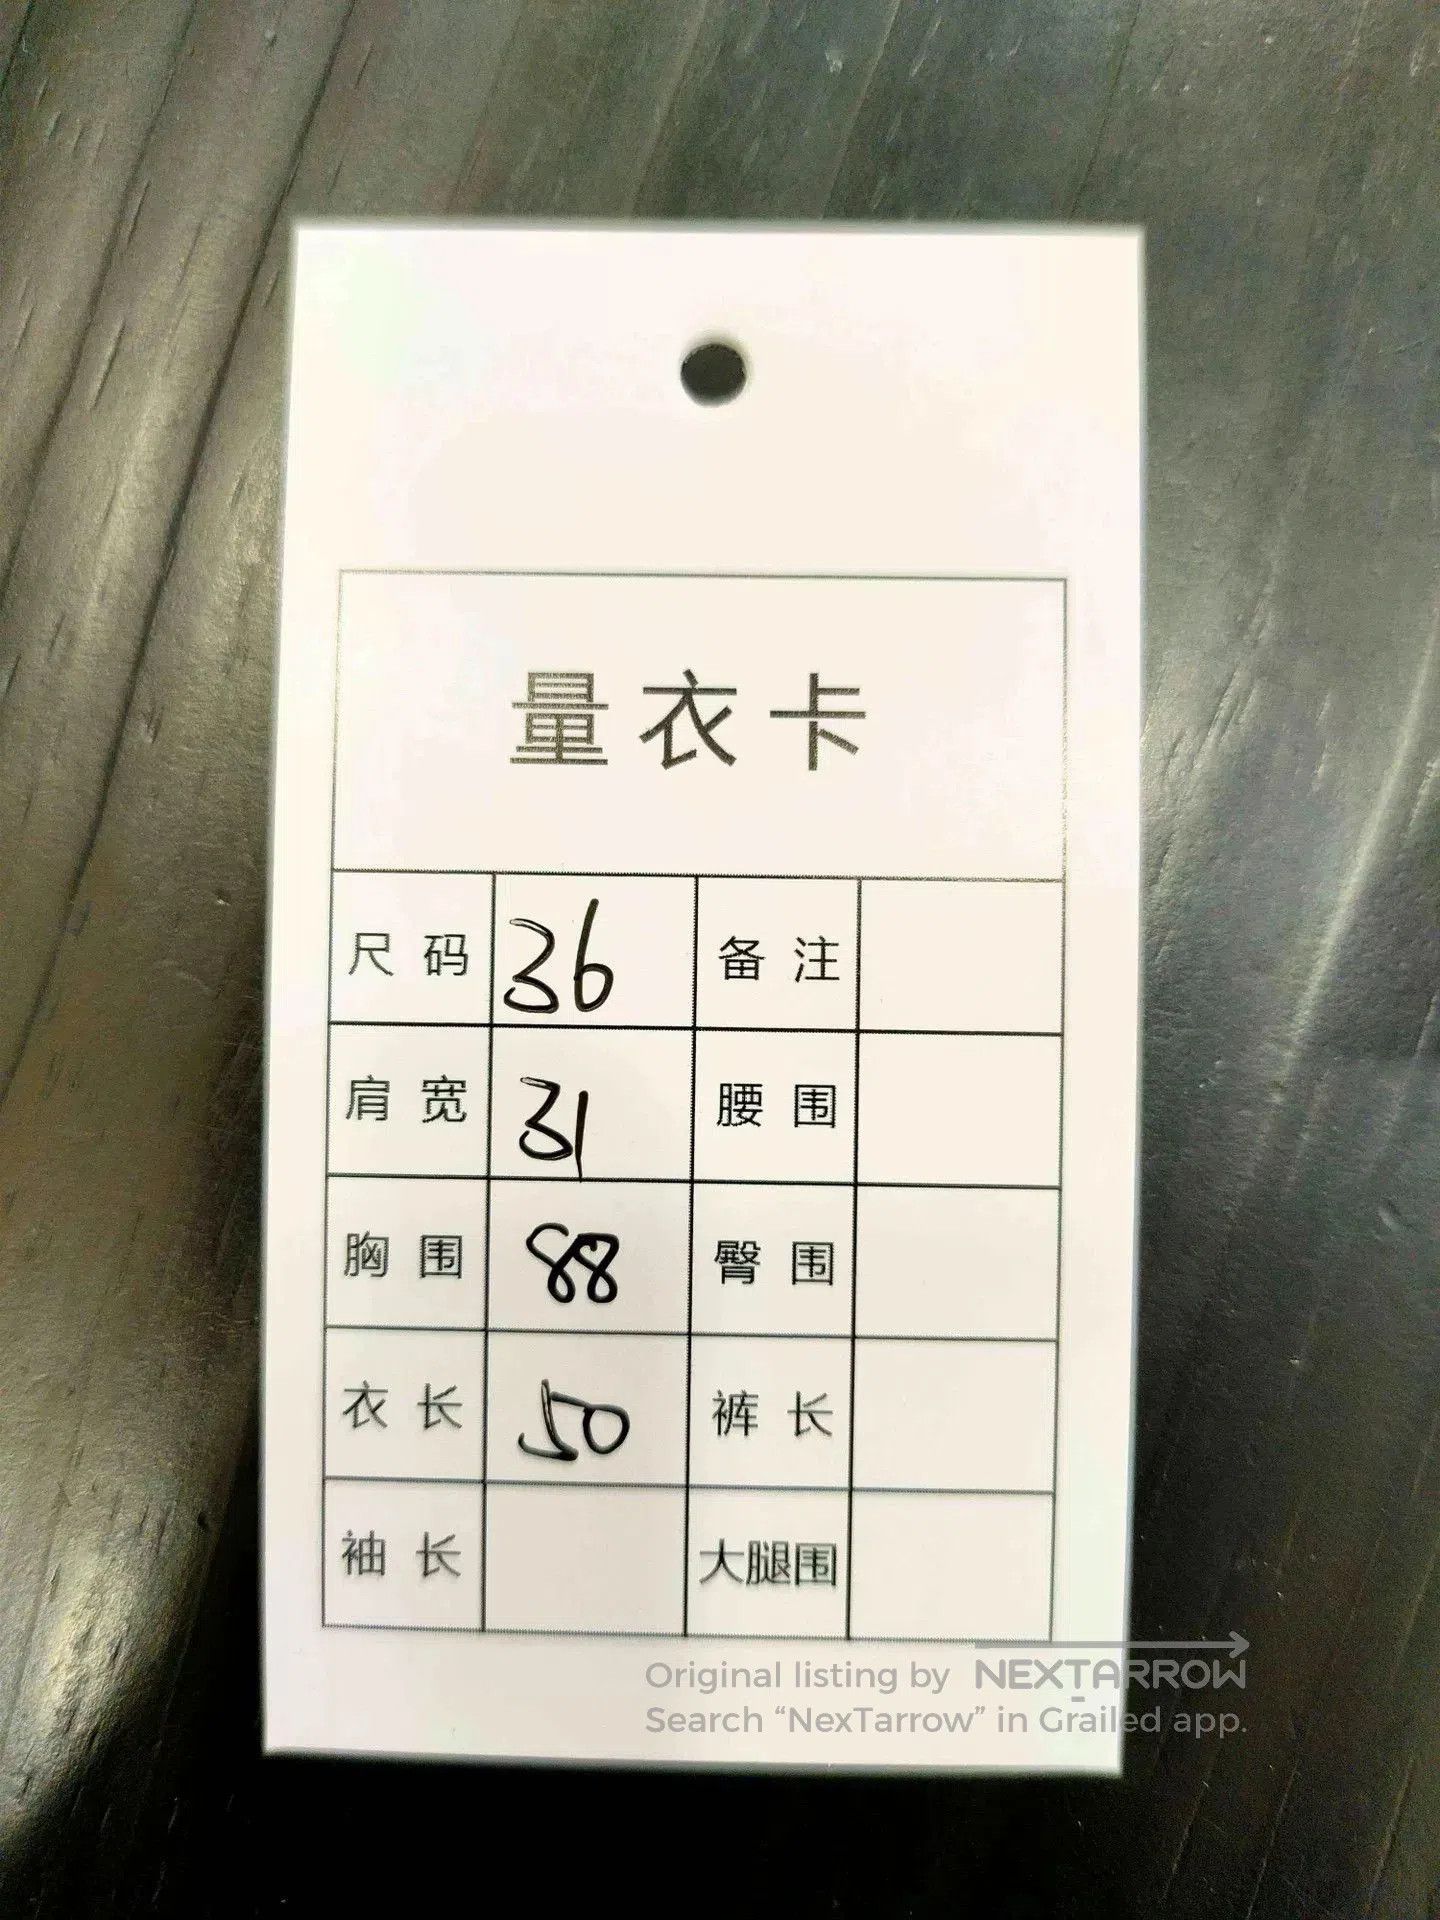 量衣卡
尺码 36 备注
肩宽 31 腰围
胸围 88 臀围
衣长 50 裤长
袖长 大腿围
Original listing by NEXTARROW
Search “NexTarrow” in Grailed app.